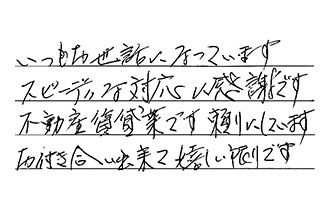 いつもお世話になっています
スピーディな対応に感謝です
不動産賃貸業です頼りにしています
お付き合い出来て嬉しい限りです